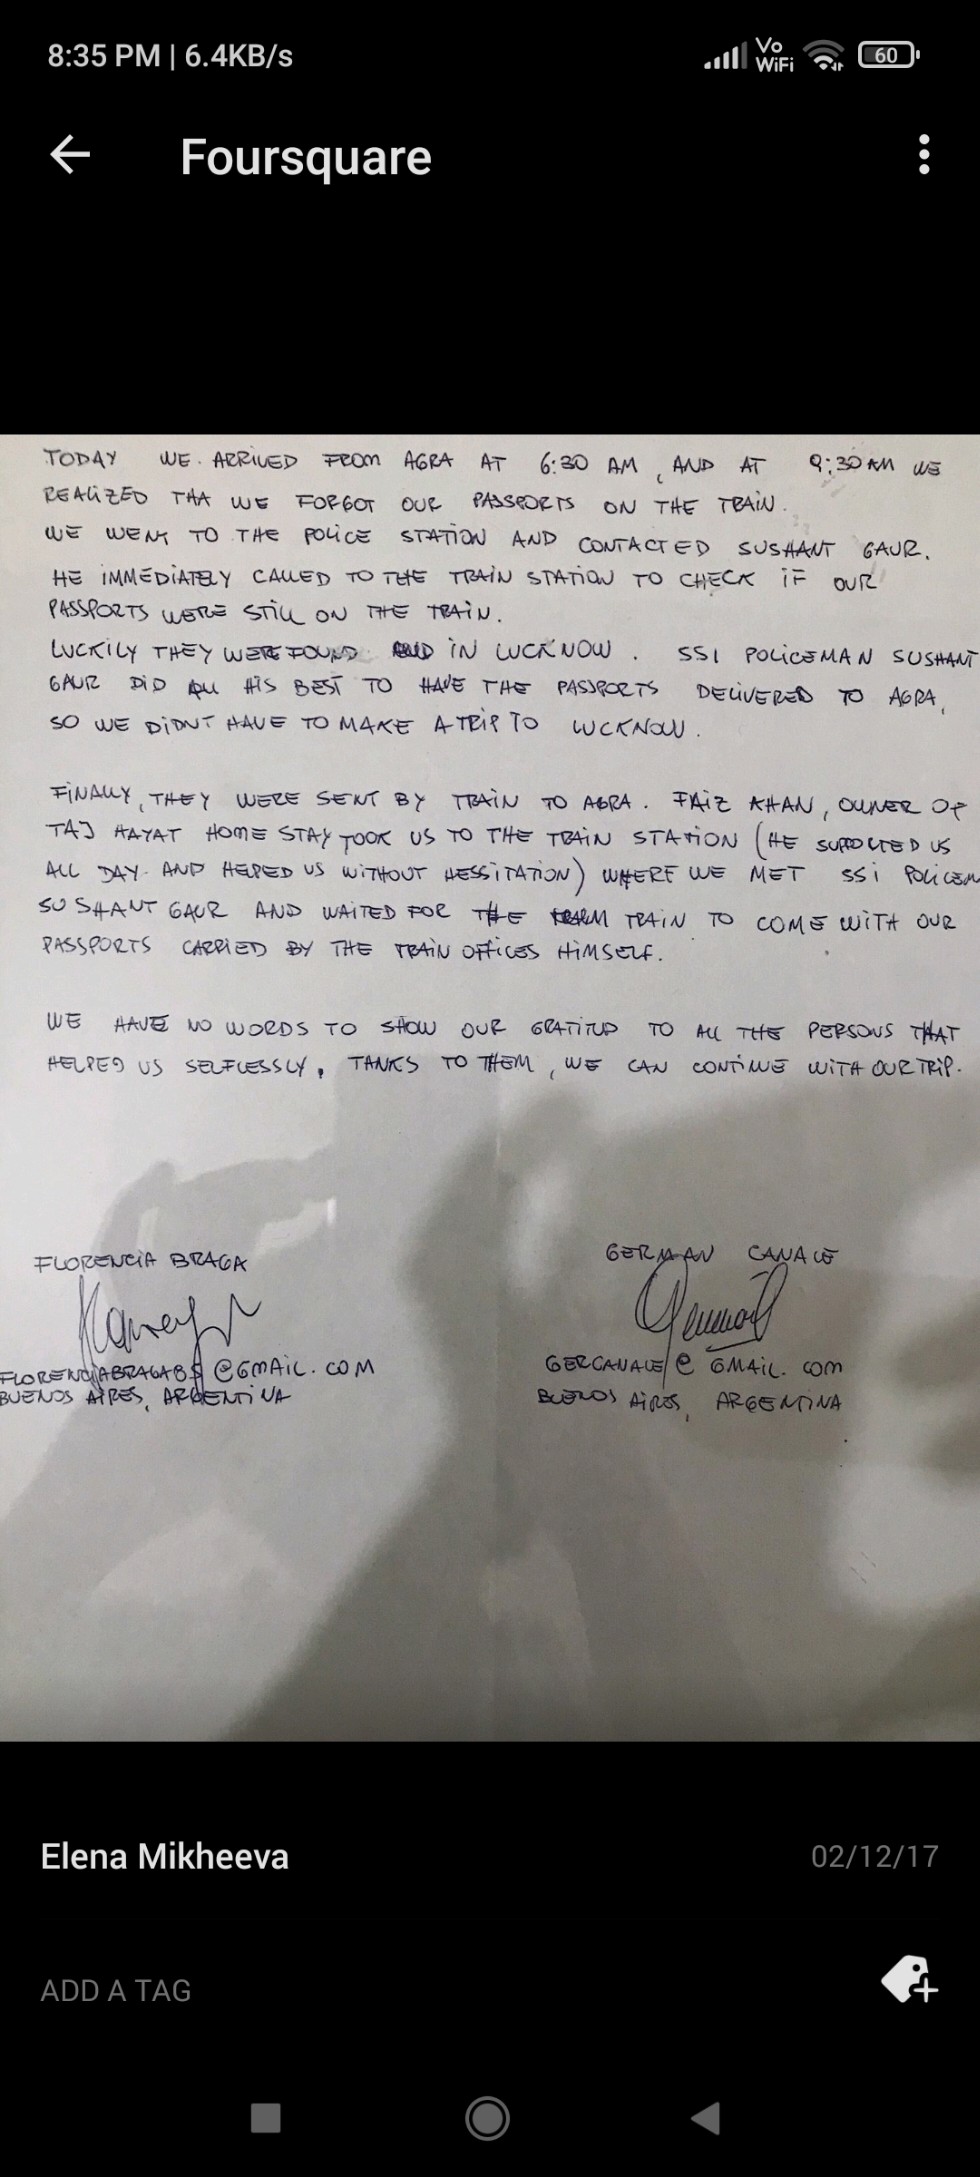 8:35 PM | 6.4KB/s
Vo
WiFi
60
Foursquare
TODAY WE ARRIVED FROM AGRA AT 6:30 AM, AND AT 9:30 AM WE
REALIZED THA WE FORGOT OUR PASSPORTS ON THE TRAIN.
WE WENT TO THE POLICE STATION AND CONTACTED SUSHANT GAUR.
HE IMMEDIATELY CALLED TO THE TRAIN STATION TO CHECK IF OUR
PASSPORTS WERE STILL ON THE TRAIN.
LUCKILY THEY WERE FOUND IN LUCKNOW. SSI POLICEMAN SUSHANT
GAUR DID ALL HIS BEST TO HAVE THE PASSPORTS DELIVERED TO AGRA,
SO WE DIDNT HAVE TO MAKE A TRIP TO LUCKNOW.
FINALLY, THEY WERE SENT BY TRAIN TO AGRA. FAIZ KHAN, OWNER OF
TAJ HAYAT HOME STAY TOOK US TO THE TRAIN STATION (HE SUPPORTED US
ALL DAY AND HELPED US WITHOUT HESSITATION) WHERE WE MET SSI POLICEM
SUSHANT GAUR AND WAITED FOR THE TRAIN TO COME WITH OUR
PASSPORTS CARRIED BY THE TRAIN OFFICES HIMSELF.
WE HAVE NO WORDS TO SHOW OUR GRATITUD TO ALL THE PERSONS THAT
HELPED US SELFLESSLY, TANKS TO THEM, WE CAN CONTINUE WITH OUR TRIP.
FLORENCIA BRAGA
GERMAN CANALE
@GMAIL.COM
GERCANALE@GMAIL.COM
BUENOS AIRES, ARGENTINA
BUENOS AIRES, ARGENTINA
Elena Mikheeva
02/12/17
ADD A TAG